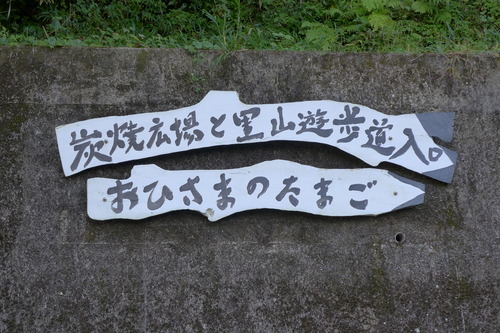 炭焼広場と里山遊歩道入口
おひさまのたまご